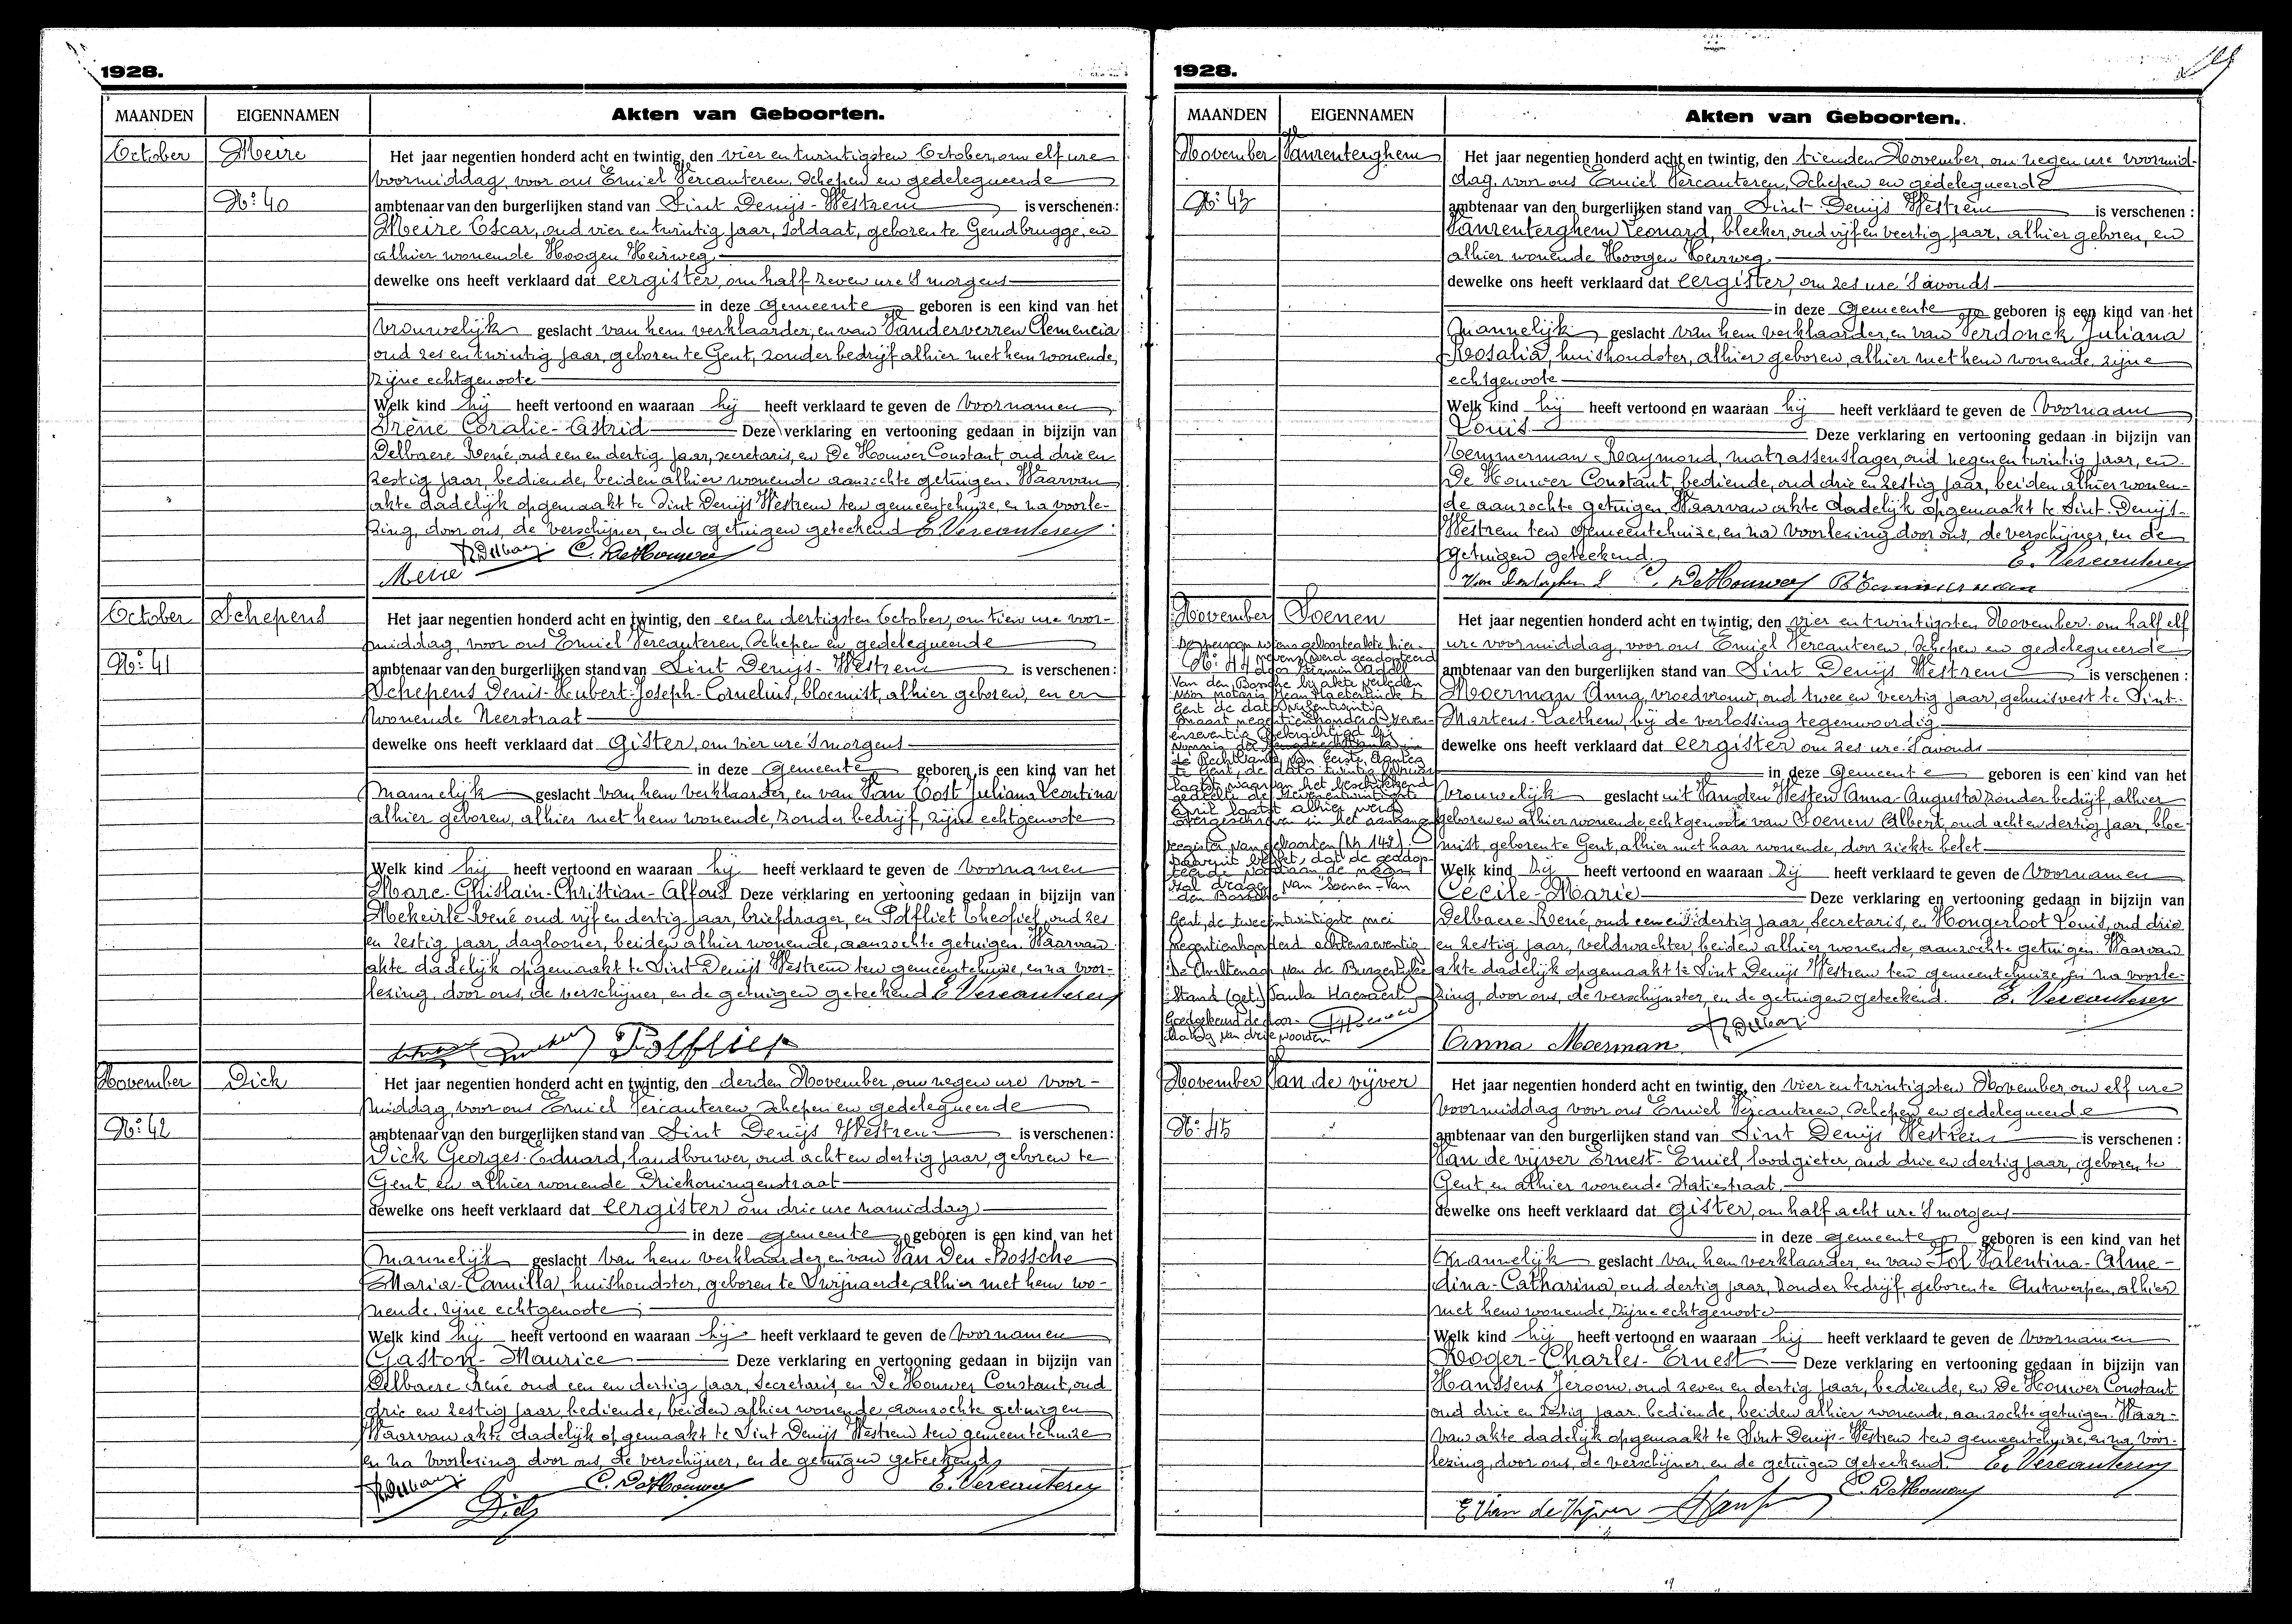 1928.
MAANDEN EIGENNAMEN Akten van Geboorten.
October Meire
Het jaar negentien honderd acht en twintig, den vier en twintigsten October, om elf ure
voormiddag, voor ons Emiel Vercauteren, Schepen en gedelegueerde
No: 40
ambtenaar van den burgerlijken stand van Sint Denijs-Westrem is verschenen:
Meire Oscar, oud vier en twintig jaar, soldaat, geboren te Gendbrugge, en
alhier wonende Hoogen Heirweg
dewelke ons heeft verklaard dat eergister, om half zeven ure 's morgens
in deze Gemeente geboren is een kind van het
Vrouwelijk geslacht van hem verklaarder, en van Vanderverren Clemencia
oud zes en twintig jaar, geboren te Gent, zonder bedrijf alhier met hem wonende,
zijne echtgenoote
Welk kind hij heeft vertoond en waaraan hij heeft verklaard te geven de voornamen
Irène Coralie-Astrid Deze verklaring en vertooning gedaan in bijzijn van
Delbaere René, oud een en dertig jaar, secretaris, en De Houwer Constant, oud drie en
zestig jaar, bediende, beiden alhier wonende aanzochte getuigen. Waarvan
akte dadelijk opgemaakt te Sint Denijs Westrem ten gemeentehuize, en na voorle-
zing, door ons, de verschijner, en de getuigen geteekend E. Vercauteren
R Delbaere C. De Houwer
Meire
October Schepens
Het jaar negentien honderd acht en twintig, den een en dertigsten October, om tien ure voor-
middag, voor ons Emiel Vercauteren, Schepen en gedelegueerde
No: 41
ambtenaar van den burgerlijken stand van Sint Denijs-Westrem is verschenen:
Schepens Denis-Hubert-Joseph-Cornelius, bloemist, alhier geboren, en er
wonende Neerstraat
dewelke ons heeft verklaard dat Gister, om vier ure 's morgens
in deze Gemeente geboren is een kind van het
Mannelijk geslacht van hem verklaarder, en van Van Oost Juliana Leontina
alhier geboren, alhier met hem wonende, zonder bedrijf, zijne echtgenoote
Welk kind hij heeft vertoond en waaraan hij heeft verklaard te geven de voornamen
Marc-Ghislain-Christian-Alfons Deze verklaring en vertooning gedaan in bijzijn van
Mekeirle René oud vijf en dertig jaar, briefdrager, en Polfliet Theofiel, oud zes
en zestig jaar, daglooner, beiden alhier wonende, aanzochte getuigen. Waarvan
akte dadelijk opgemaakt te Sint Denijs Westrem ten gemeentehuize, en na voor-
lezing, door ons, de verschijner, en de getuigen geteekend E Vercauteren
Polfliet
November Dick
Het jaar negentien honderd acht en twintig, den derden November, om negen ure voor-
middag, voor ons Emiel Vercauteren Schepen en gedelegueerde
No: 42
ambtenaar van den burgerlijken stand van Sint Denijs Westrem is verschenen:
Dick Georges-Eduard, landbouwer, oud acht en dertig jaar, geboren te
Gent, en alhier wonende Driekoningenstraat
dewelke ons heeft verklaard dat eergister om drie ure namiddag
in deze gemeente geboren is een kind van het
Mannelijk geslacht van hem verklaarder, en van Van Den Bossche
Maria-Camilla, huishoudster, geboren te Swijnaerde, alhier met hem wo-
nende, zijne echtgenoote
Welk kind hij heeft vertoond en waaraan hij heeft verklaard te geven de voornamen
Gaston-Maurice Deze verklaring en vertooning gedaan in bijzijn van
Delbaere René oud een en dertig jaar, secretaris, en De Houwer Constant, oud
drie en zestig jaar, bediende, beiden alhier wonende aanzochte getuigen
Waarvan akte dadelijk opgemaakt te Sint Denijs Westrem ten gemeentehuize
en na voorlezing door ons, de verschijner, en de getuigen geteekend
R Delbaere C. De Houwer E. Vercauteren
Dick
1928.
MAANDEN EIGENNAMEN Akten van Geboorten.
November Vanrenterghem
Het jaar negentien honderd acht en twintig, den tienden November, om negen ure voormid-
dag, voor ons Emiel Vercauteren, Schepen en gedelegueerde
No: 43
ambtenaar van den burgerlijken stand van Sint Denijs Westrem is verschenen:
Vanrenterghem Leonard, bleeker, oud vijf en veertig jaar, alhier geboren, en
alhier wonende Hoogen Heirweg
dewelke ons heeft verklaard dat eergister, om zes ure 's avonds
in deze Gemeente geboren is een kind van het
Mannelijk geslacht van hem verklaarder, en van Verdonck Juliana
Rosalia, huishoudster, alhier geboren, alhier met hem wonende, zijne
echtgenoote
Welk kind hij heeft vertoond en waaraan hij heeft verklaard te geven de Voornaam
Louis Deze verklaring en vertooning gedaan in bijzijn van
Temmerman Raymond, matrassenslager, oud negen en twintig jaar, en
De Houwer Constant, bediende, oud drie en zestig jaar, beiden alhier wonen-
de aanzochte getuigen. Waarvan akte dadelijk opgemaakt te Sint-Denijs-
Westrem ten Gemeentehuize, en na voorlezing door ons, de verschijner, en de
Getuigen geteekend. E. Vercauteren
Van Renterghem L C. De Houwer R Temmerman
November Soenen
Het jaar negentien honderd acht en twintig, den vier en twintigsten November om half elf
ure voormiddag, voor ons Emiel Vercauteren, Schepen en gedelegueerde
No: 44
De persoon wiens geboorteakte hier-
nevens, werd geadopteerd
door Firmin
Van den Bossche bij akte verleden
voor notaris Jean Maeterlinck te
Gent de dato
maart negentienhonderd zeven-
enzeventig, bekrachtigd bij
vonnis der
de Rechtbank van Eerste Aanleg
te Gent, de dato twintig
laatst, waarvan het beschikkend
gedeelte de zevenentwintigste
april laatst alhier werd
overgeschreven in het aanhangs-
register van geboorten (Nr 142).
Daaruit blijkt, dat de geadop-
teerde voortaan de naam
zal dragen van Soenen-Van
den Bossche
Gent, de tweeëntwintigste mei
negentienhonderd achtenzeventig
De Ambtenaar van de Burgerlijke
Stand (get.) Paula Haesaert
Goedgekeurd de door-
haling van drie woorden
ambtenaar van den burgerlijken stand van Sint Denijs Westrem is verschenen:
Moerman Anna, vroedvrouw, oud twee en veertig jaar, gehuisvest te Sint-
Martens-Laethem, bij de verlossing tegenwoordig
dewelke ons heeft verklaard dat eergister om zes ure 's avonds
in deze Gemeente geboren is een kind van het
Vrouwelijk geslacht uit Vanden Westen Anna-Augusta zonder bedrijf, alhier
geboren en alhier wonende, echtgenoote van Soenen Albert, oud acht en dertig jaar, bloe-
mist, geboren te Gent, alhier met haar wonende, door ziekte belet
Welk kind zij heeft vertoond en waaraan zij heeft verklaard te geven de voornamen
Cécile-Marie Deze verklaring en vertooning gedaan in bijzijn van
Delbaere René, oud een en dertig jaar, secretaris, en Hongerloot Louis, oud drie
en zestig jaar, veldwachter, beiden alhier wonende, aanzochte getuigen. Waarvan
akte dadelijk opgemaakt te Sint Denijs Westrem ten gemeentehuize, en na voorle-
zing, door ons, de verschijnster, en de getuigen geteekend. E. Vercauteren
R Delbaere
Anna Moerman
November Van de vijver
Het jaar negentien honderd acht en twintig, den vier en twintigsten November, om elf ure
voormiddag voor ons Emiel Vercauteren, Schepen en gedelegueerde
No: 45
ambtenaar van den burgerlijken stand van Sint Denijs Westrem is verschenen:
Van de vijver Ernest-Emiel, loodgieter, oud drie en dertig jaar, geboren te
Gent, en alhier wonende Statiestraat
dewelke ons heeft verklaard dat gister, om half acht ure 's morgens
in deze gemeente geboren is een kind van het
Mannelijk geslacht van hem verklaarder, en van Tol Valentina-Alme-
dina-Catharina, oud dertig jaar, zonder bedrijf, geboren te Antwerpen, alhier
met hem wonende, zijne echtgenoote
Welk kind hij heeft vertoond en waaraan hij heeft verklaard te geven de voornamen
Roger-Charles-Ernest Deze verklaring en vertooning gedaan in bijzijn van
Hanssens Jeroom, oud zeven en dertig jaar, bediende, en De Houwer Constant
oud drie en zestig jaar, bediende, beiden alhier wonende, aanzochte getuigen. Waar-
van akte dadelijk opgemaakt te Sint Denijs-Westrem ten gemeentehuize, en na voor-
lezing, door ons, de verschijner, en de getuigen geteekend. E. Vercauteren
C. De Houwer
E Van de Vijver